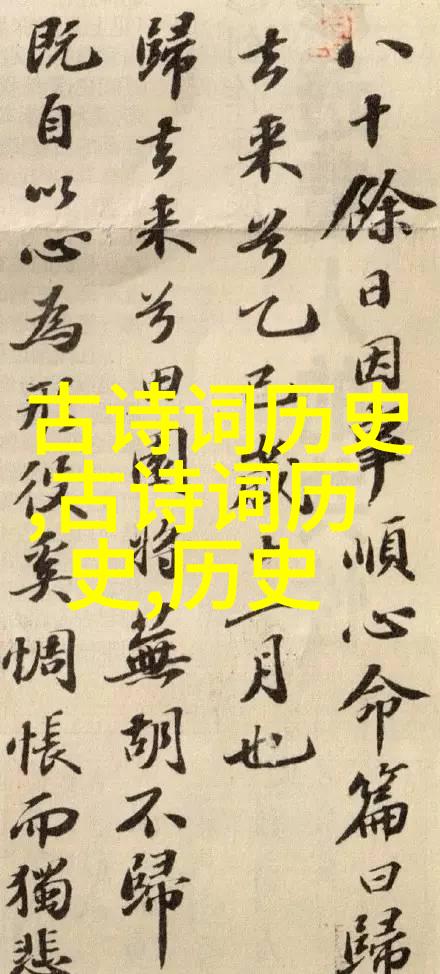 八十餘日因事順心命篇曰歸
去来兮乙巳歲十一月也
歸去来兮田園將蕪胡不歸
既自以心為形役奚惆悵而獨悲
古诗词历史
,古诗词历
史,历史